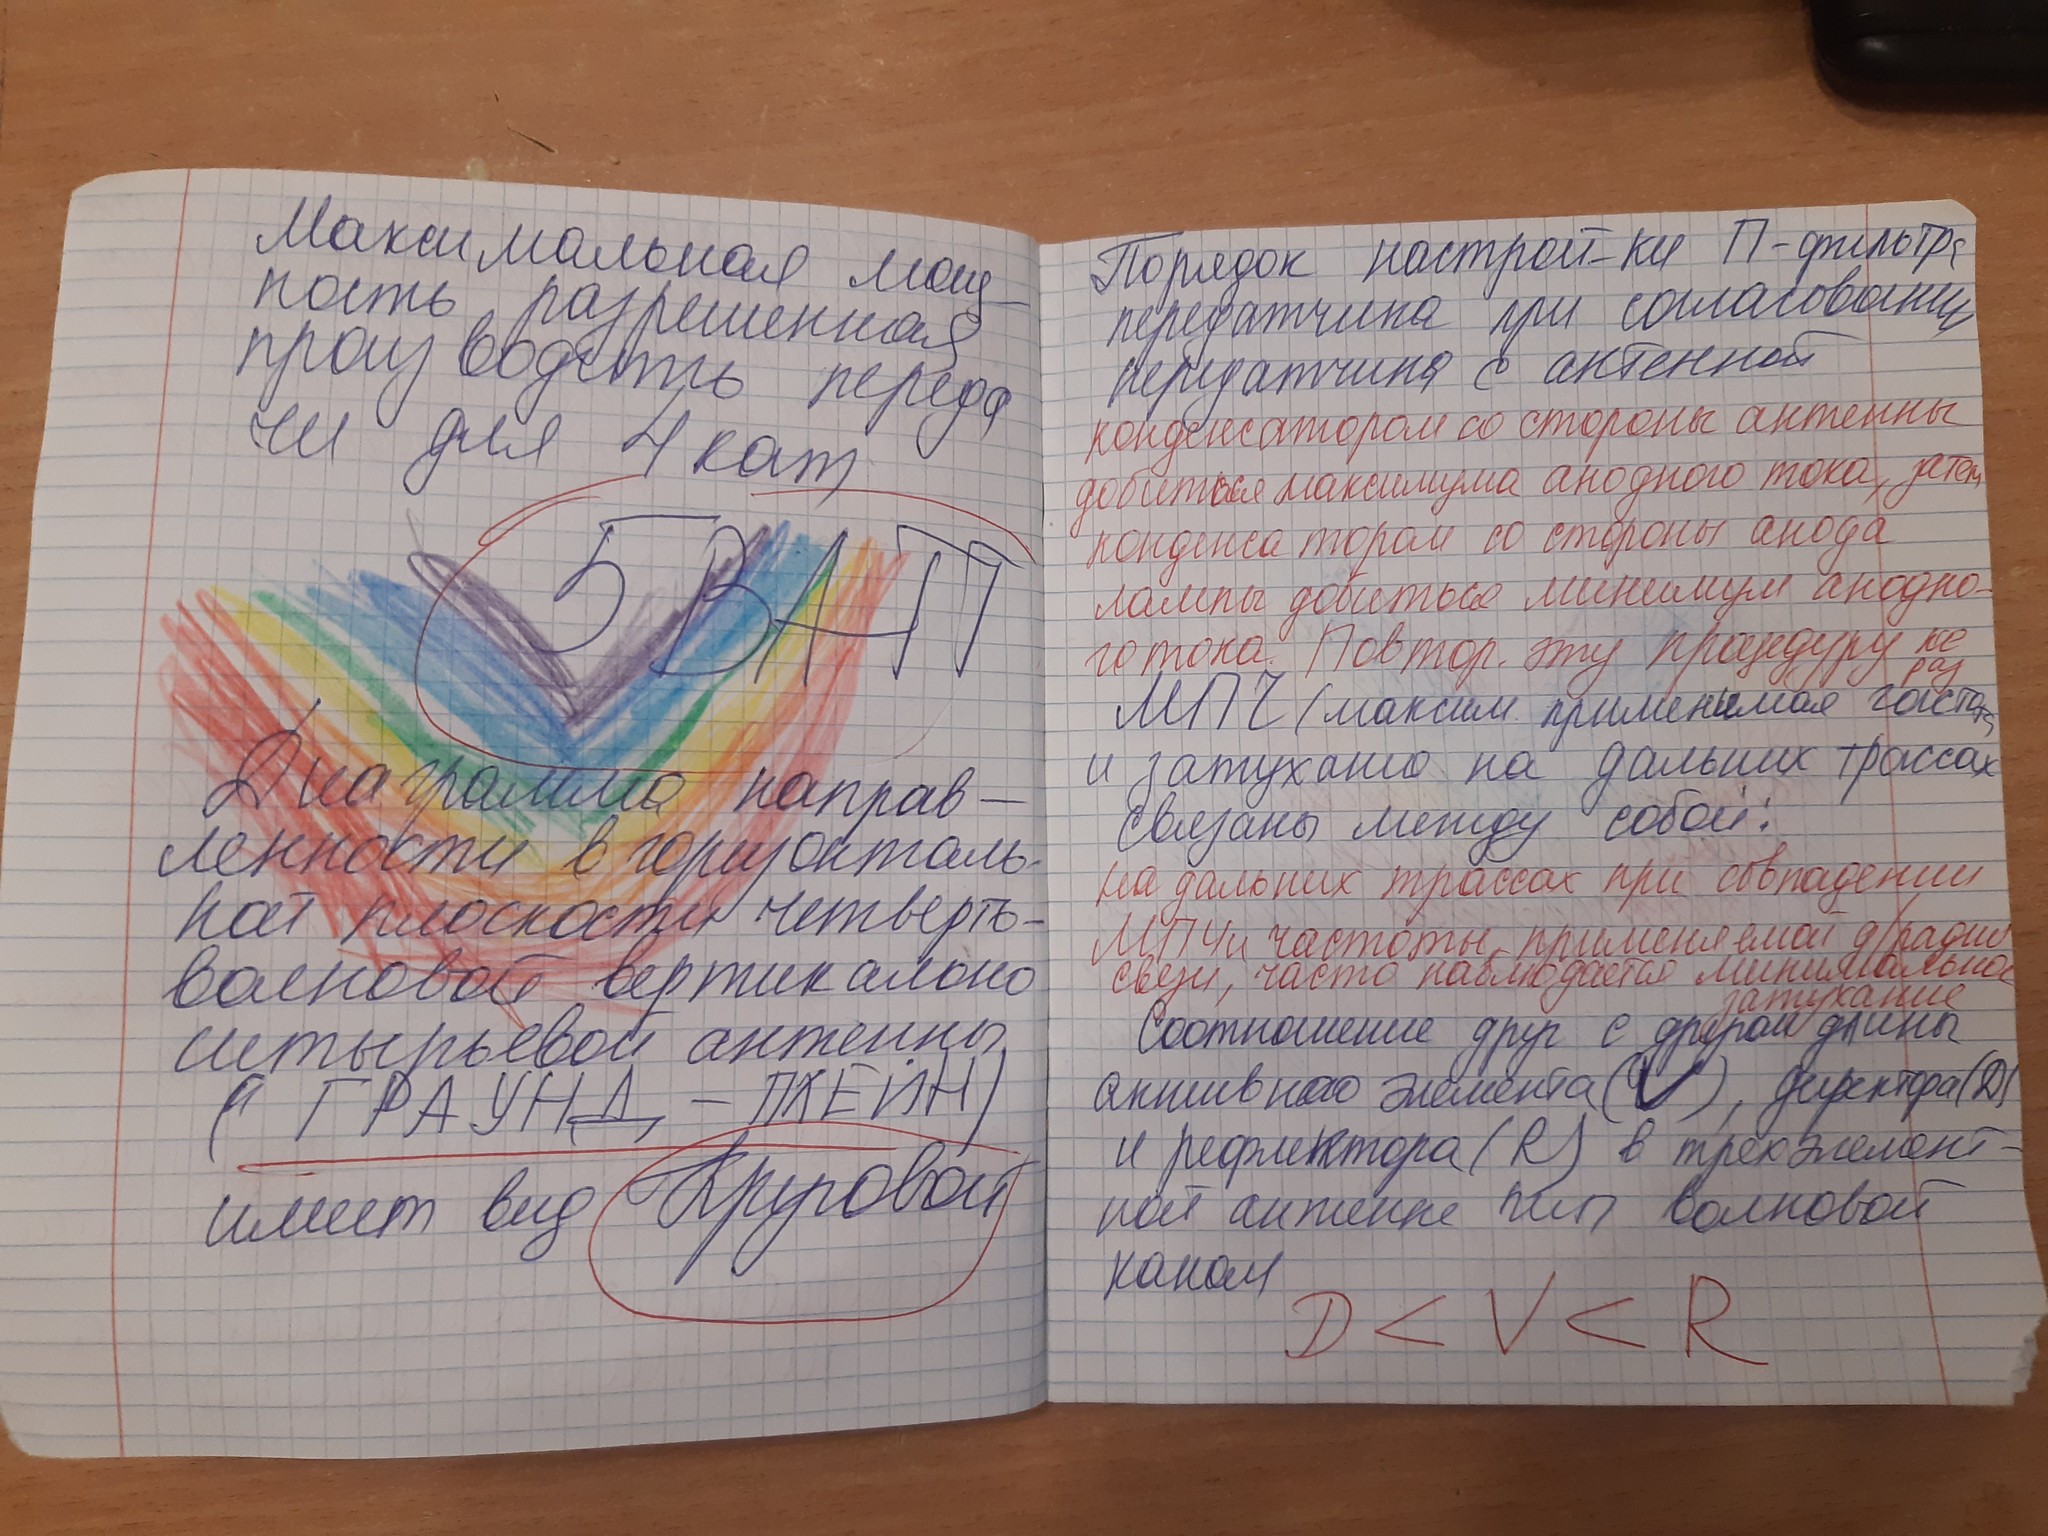 Максимальная мощ-
ность разрешенная
производить переда
чи для 4 кат
5 ВАТТ
Диаграмма направ-
ленности в горизонталь-
ной плоскости четверть-
волновой вертикально
штырьевой антенны
("ГРАУНД-ПЛЕЙН)
имеет вид Круговой
Порядок настрой-ки П-фильтра
передатчика при согласовании
передатчика с антенной
конденсатором со стороны антенны
добиться максимума анодного тока, затем
конденсатором со стороны анода
лампы добиться минимум анодно-
го тока. Повтор. эту процедуру не
раз
МПЧ (максим. применимая частота
и затухание на дальних трассах
связаны между собой:
на дальних трассах при совпадении
МПЧ и частоты, применяемой д/радио
связи, часто наблюдается минимальное
затухание
Соотношение друг с другом длины
активного элемента (V), директора (D)
и рефлектора (R) в трехэлемент-
ной антенне тип волновой
канал
D < V < R